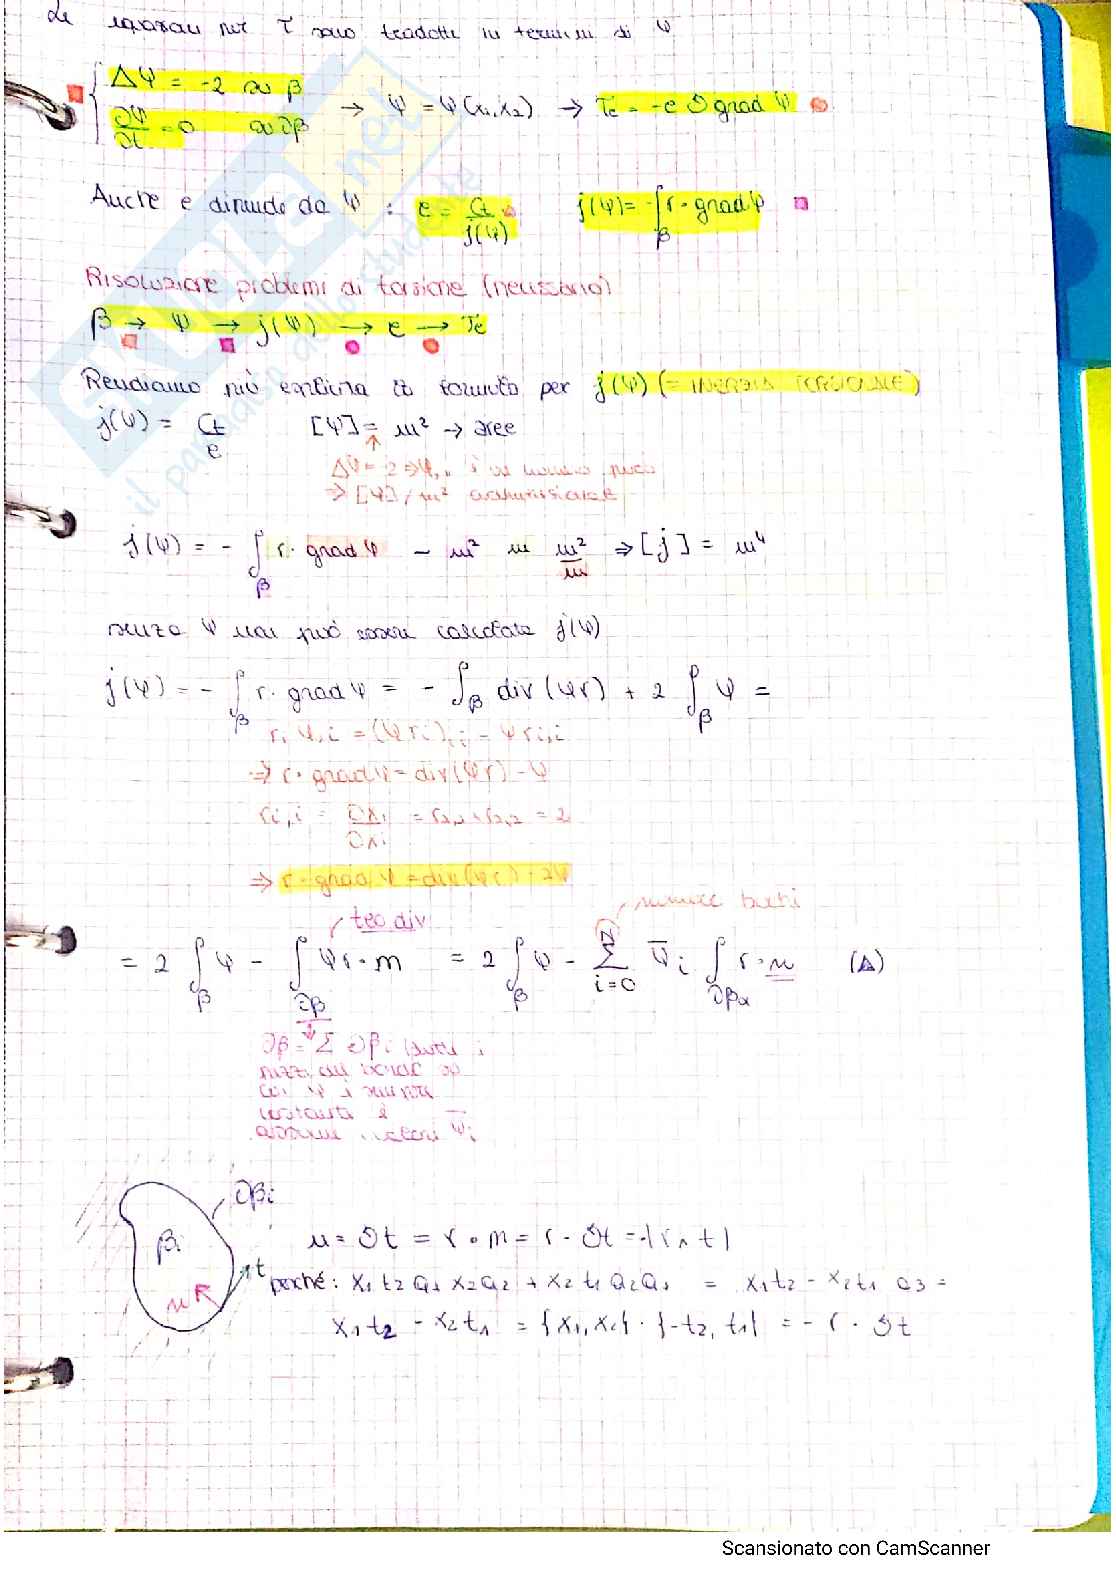 Le equazioni per τ sono tradotte in termini di ψ
Δψ = -2 su β
∂ψ/∂t = 0 su ∂β → ψ = ψ(x₁,x₂) → τe = -e ⊙ grad ψ
Anche e dipende da ψ : e = Ct/j(ψ) j(ψ) = -∫β r · grad ψ
Risoluzione problemi di torsione (neumanno)
β → ψ → j(ψ) → e → τe
Rendiamo più esplicita la formula per j(ψ) (= INERZIA TORSIONALE)
j(ψ) = Ct/e [ψ] = m² → aree
Δψ = -2 ⇒ ψ,
⇒ [ψ] m²
j(ψ) = - ∫β r · grad ψ – m² m m²/m ⇒ [j] = m⁴
senza ψ mai può essere calcolata j(ψ)
j(ψ) = - ∫β r · grad ψ = - ∫β div (ψr) + 2 ∫β ψ =
rᵢ ψ,i = (ψ rᵢ),i - ψ rᵢ,i
⇒ r · grad ψ = div(ψr) - ψ
rᵢ,i = ∂xᵢ/∂xᵢ = = 2
⇒ r · grad ψ = div(ψr) - 2ψ
teo div numero buchi
= 2 ∫β ψ - ∫∂β ψ r · m = 2 ∫β ψ - Σ N i=0 ψ̄i ∫∂βα r · n (Δ)
∂β = Σ ∂βi
cui ψ è
costante e
assume valori ψ̄i
∂βi
βi
n
t
n = ⊙t = r · m = r · ⊙t = -|r ∧ t|
perché : x₁ t₂ a₁ x₂ a₂ + x₂ t₁ a₂ a₁ = x₁t₂ - x₂t₁ a₃ =
x₁t₂ - x₂t₁ = {x₁, x₂} · {-t₂, t₁} = - r · ⊙t
Scansionato con CamScanner